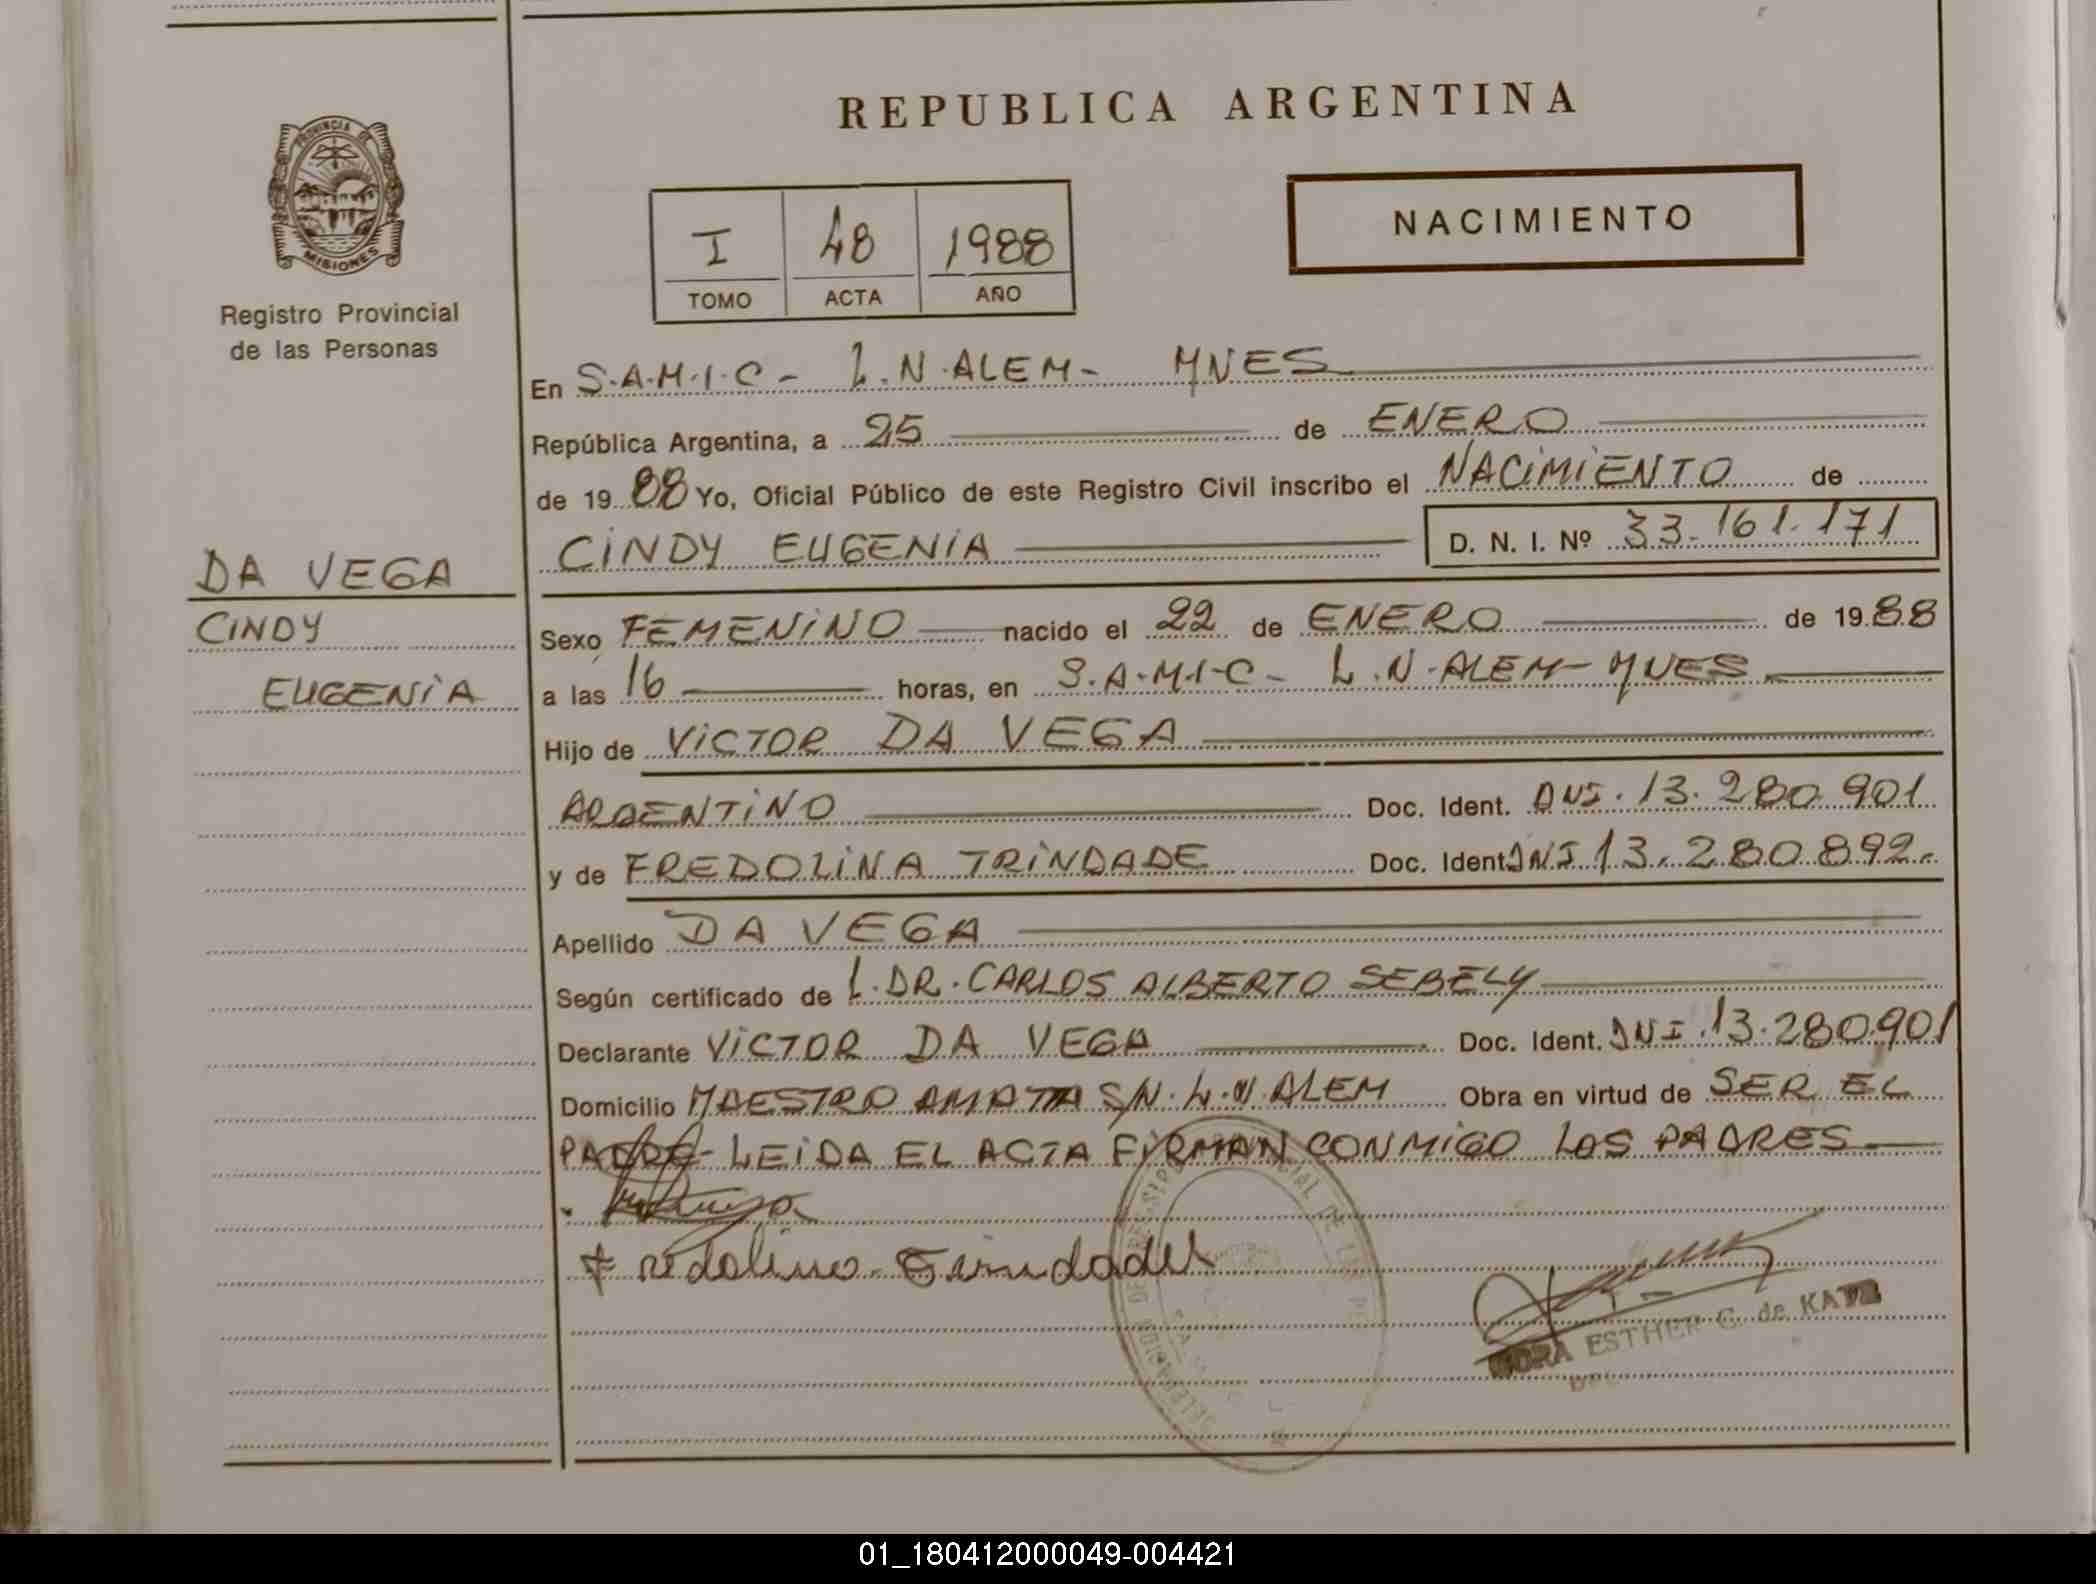 REPUBLICA ARGENTINA
PROVINCIA DE
MISIONES
Registro Provincial
de las Personas
I 48 1988
TOMO ACTA AÑO
NACIMIENTO
En S.A.M.I.C - L.N. ALEM - MNES
República Argentina, a 25 de ENERO
de 1988 Yo, Oficial Público de este Registro Civil inscribo el NACIMIENTO de
CINDY EUGENIA D. N. I. Nº 33.161.171
DA VEGA
CINDY
EUGENIA
Sexo FEMENINO nacido el 22 de ENERO de 1988
a las 16 horas, en S.A.M.I.C - L.N. ALEM - MNES
Hijo de VICTOR DA VEGA
ARGENTINO Doc. Ident. DNI. 13.280.901
y de FREDOLINA TRINDADE Doc. Ident. DNI 13.280.892.-
Apellido DA VEGA
Según certificado de L. DR. CARLOS ALBERTO SEBELY
Declarante VICTOR DA VEGA Doc. Ident. DNI. 13.280.901
Domicilio MAESTRO S/N. L.N. ALEM Obra en virtud de SER EL
PADRE - LEIDA EL ACTA FIRMAN CONMIGO LOS PADRES
Fredolina Trindade
ESTHER C. de
01_180412000049-004421